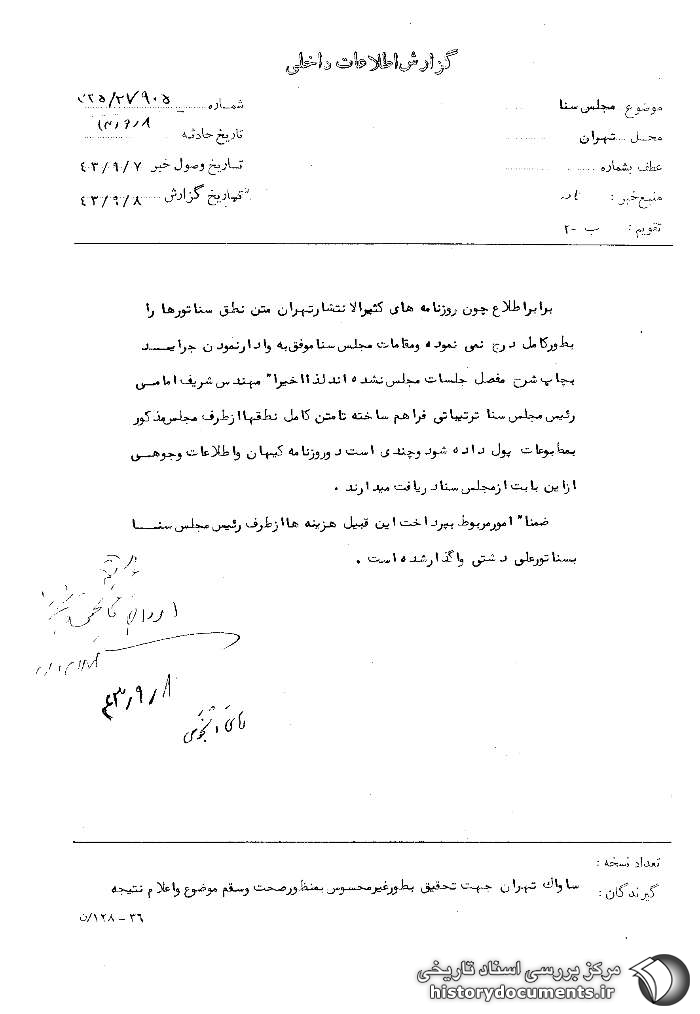 گزارش اطلاعات داخلی
موضوع مجلس سنا
شماره ۲۷۹۰۵/
محل تهران
تاریخ حادثه
عطف بشماره
تاریخ وصول خبر ۴۳/۹/۷
منبع خبر :
تاریخ گزارش ۴۳/۹/۸
تقویم : ب -۲
برابر اطلاع چون روزنامه های کثیرالانتشار تهران متن نطق سناتورها را
بطور کامل درج نمی نموده و مقامات مجلس سنا موفق به وادار نمودن جرایــد
بچاپ شرح مفصل جلسات مجلس نشده اند لذا اخیرا" مهندس شریف امامــی
رئیس مجلس سنا ترتیباتی فراهم ساخته تا متن کامل نطقها از طرف مجلس مذکور
بمطبوعات پول داده شود و چندی است دو روزنامه کیهان و اطلاعات وجوهــی
از این بابت از مجلس سنا دریافت میدارند .
ضمنا" امور مربوط بپرداخت این قبیل هزینه ها از طرف رئیس مجلس سنــا
بسناتور علی دشتی واگذار شده است .
۴۳/۹/۸
تعداد نسخه :
گیرندگان : ساواک تهران جهت تحقیق بطور غیر محسوس بمنظور صحت و سقم موضوع و اعلام نتیجه
۳۶ - ۱۲۸/ن
مرکز بررسی اسناد تاریخی
historydocuments.ir